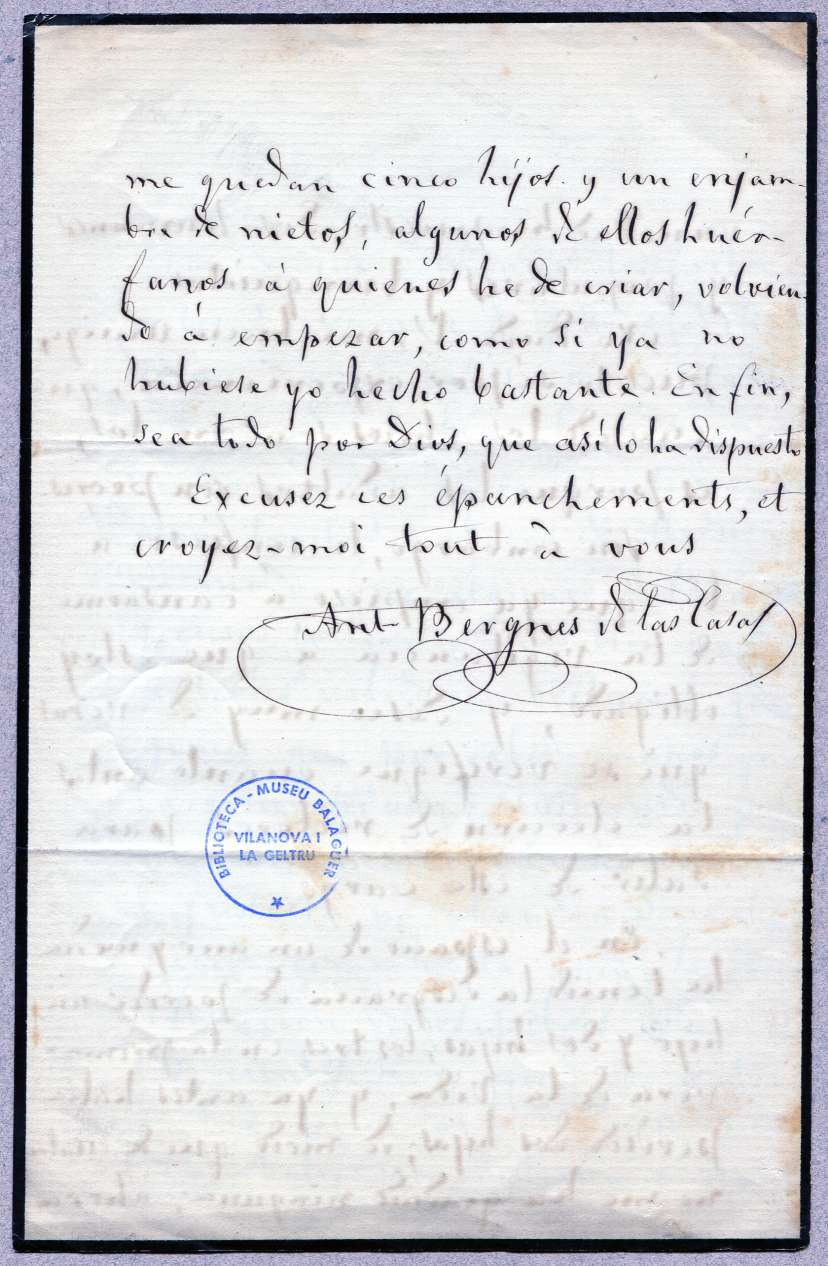 me quedan cinco hijos y un enjam-
bre de nietos, algunos de ellos huér-
fanos á quienes he de criar, volvien-
do á empezar, como si ya no
hubiese yo hecho bastante. En fin,
sea todo por Dios, que así lo ha dispuesto
Excusez ces épanchements, et
croyez-moi tout à vous
Ant Bergnes de las Casas
BIBLIOTECA - MUSEU BALAGUER
VILANOVA I
LA GELTRU